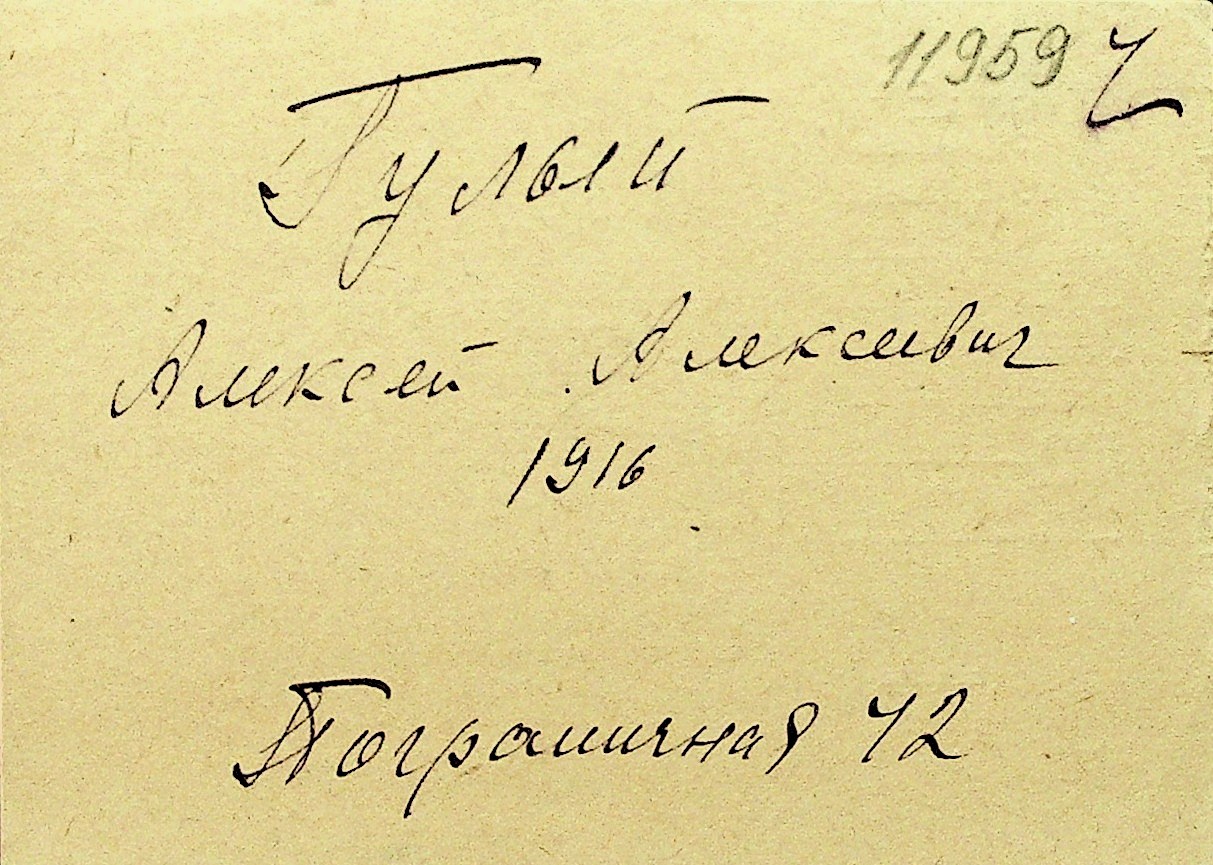 11959 Ч
Гулый
Алексей Алексеевич
1916
Пограничная 42